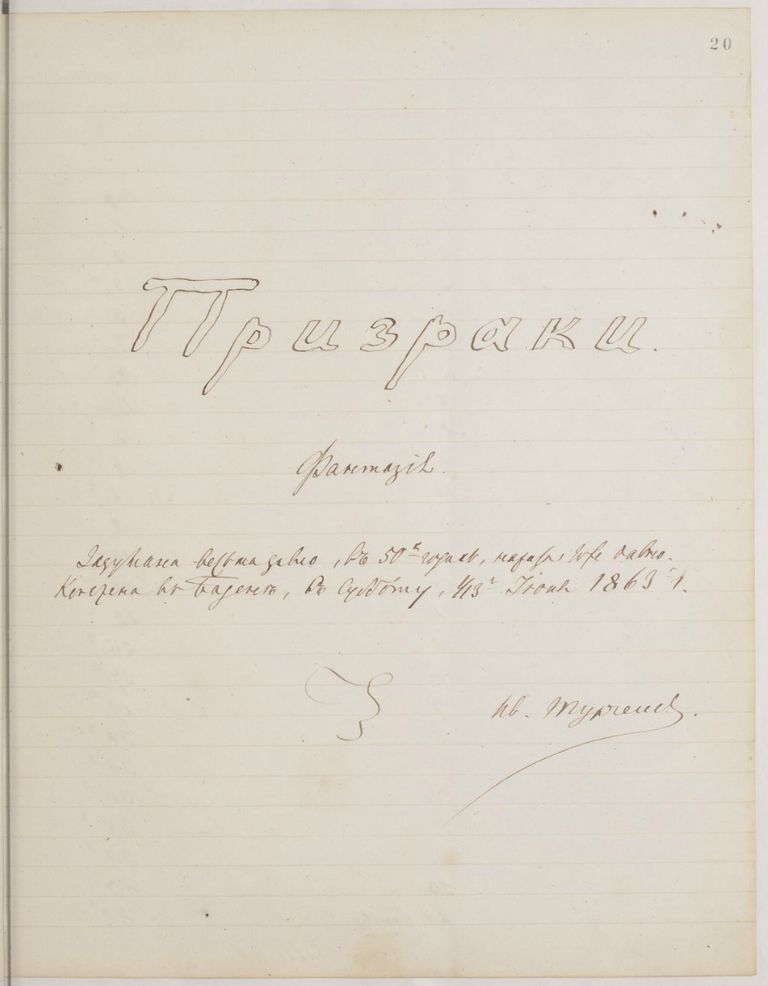 20
Призраки.
Фантазія.
Задумана весьма давно, въ 50ᵡ годахъ, начата тоже давно.
Кончена въ Баденѣ, въ Субботу, 1/13ᵍᵒ Іюня 1863 г.
Ив. Тургенев.